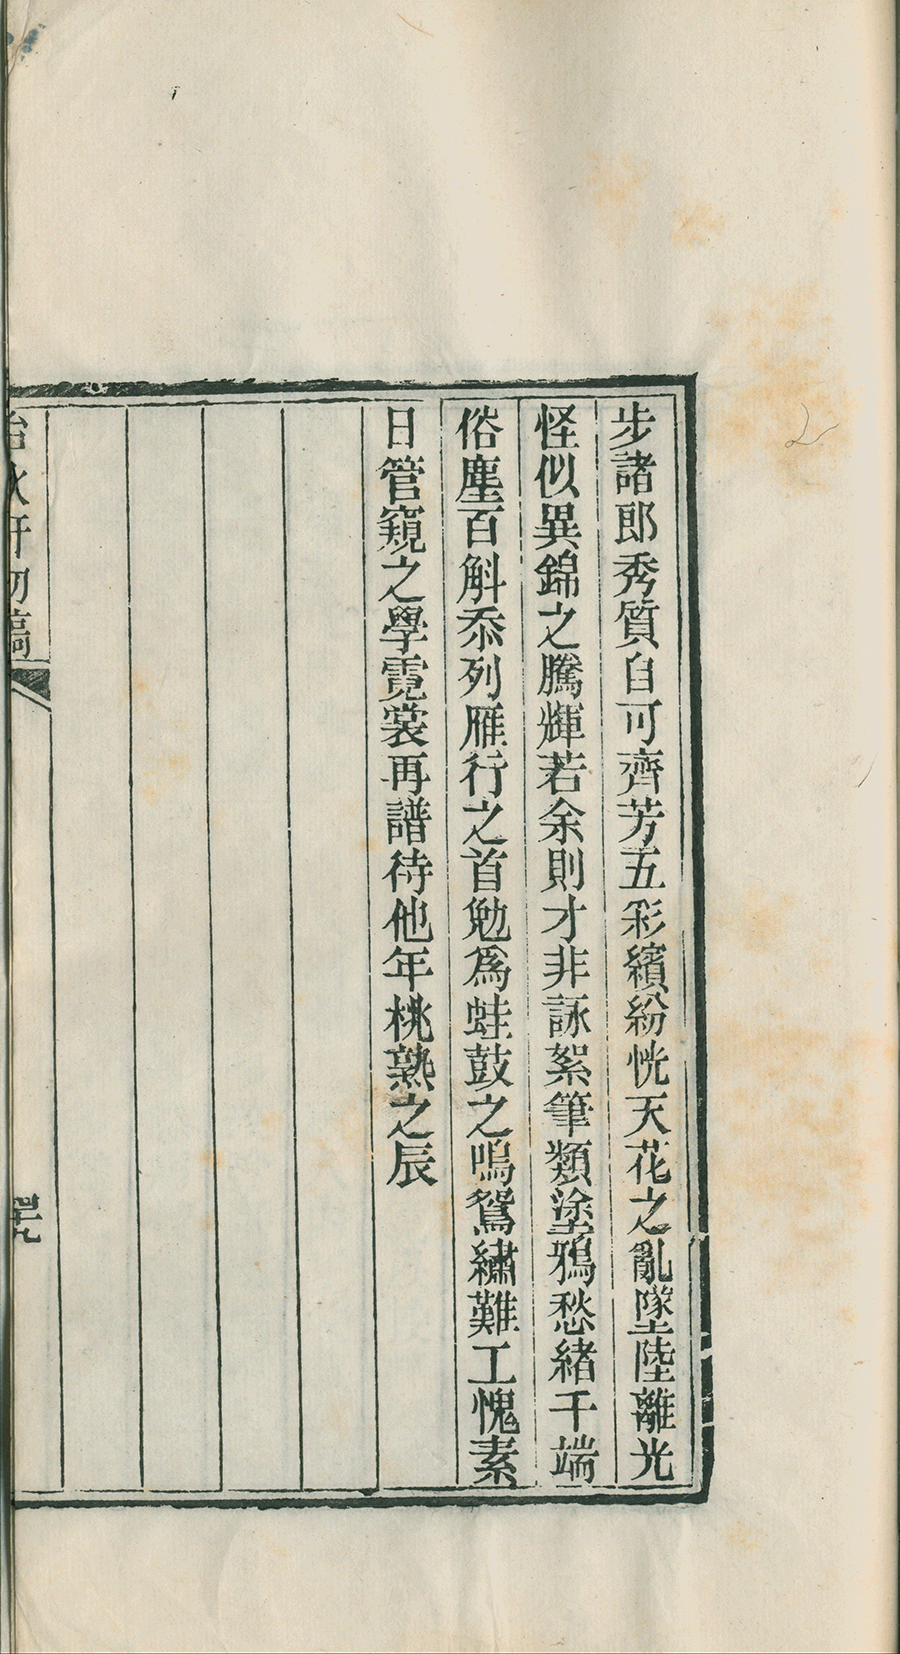 步諸郎秀質自可齊芳五彩繽紛恍天花之亂墜陸離光
怪似異錦之騰輝若余則才非詠絮筆類塗鴉愁緒千端
俗塵百斛忝列雁行之首勉爲蛙鼓之鳴鴛繡難工愧素
日管窺之學霓裳再譜待他年桃熟之辰